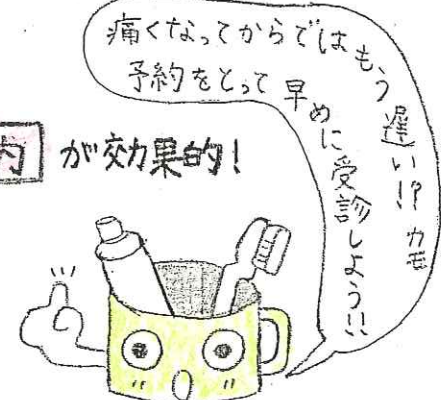 痛くなってからではもう遅い!?カモ
予約をとって早めに受診しよう!!
内 が効果的!